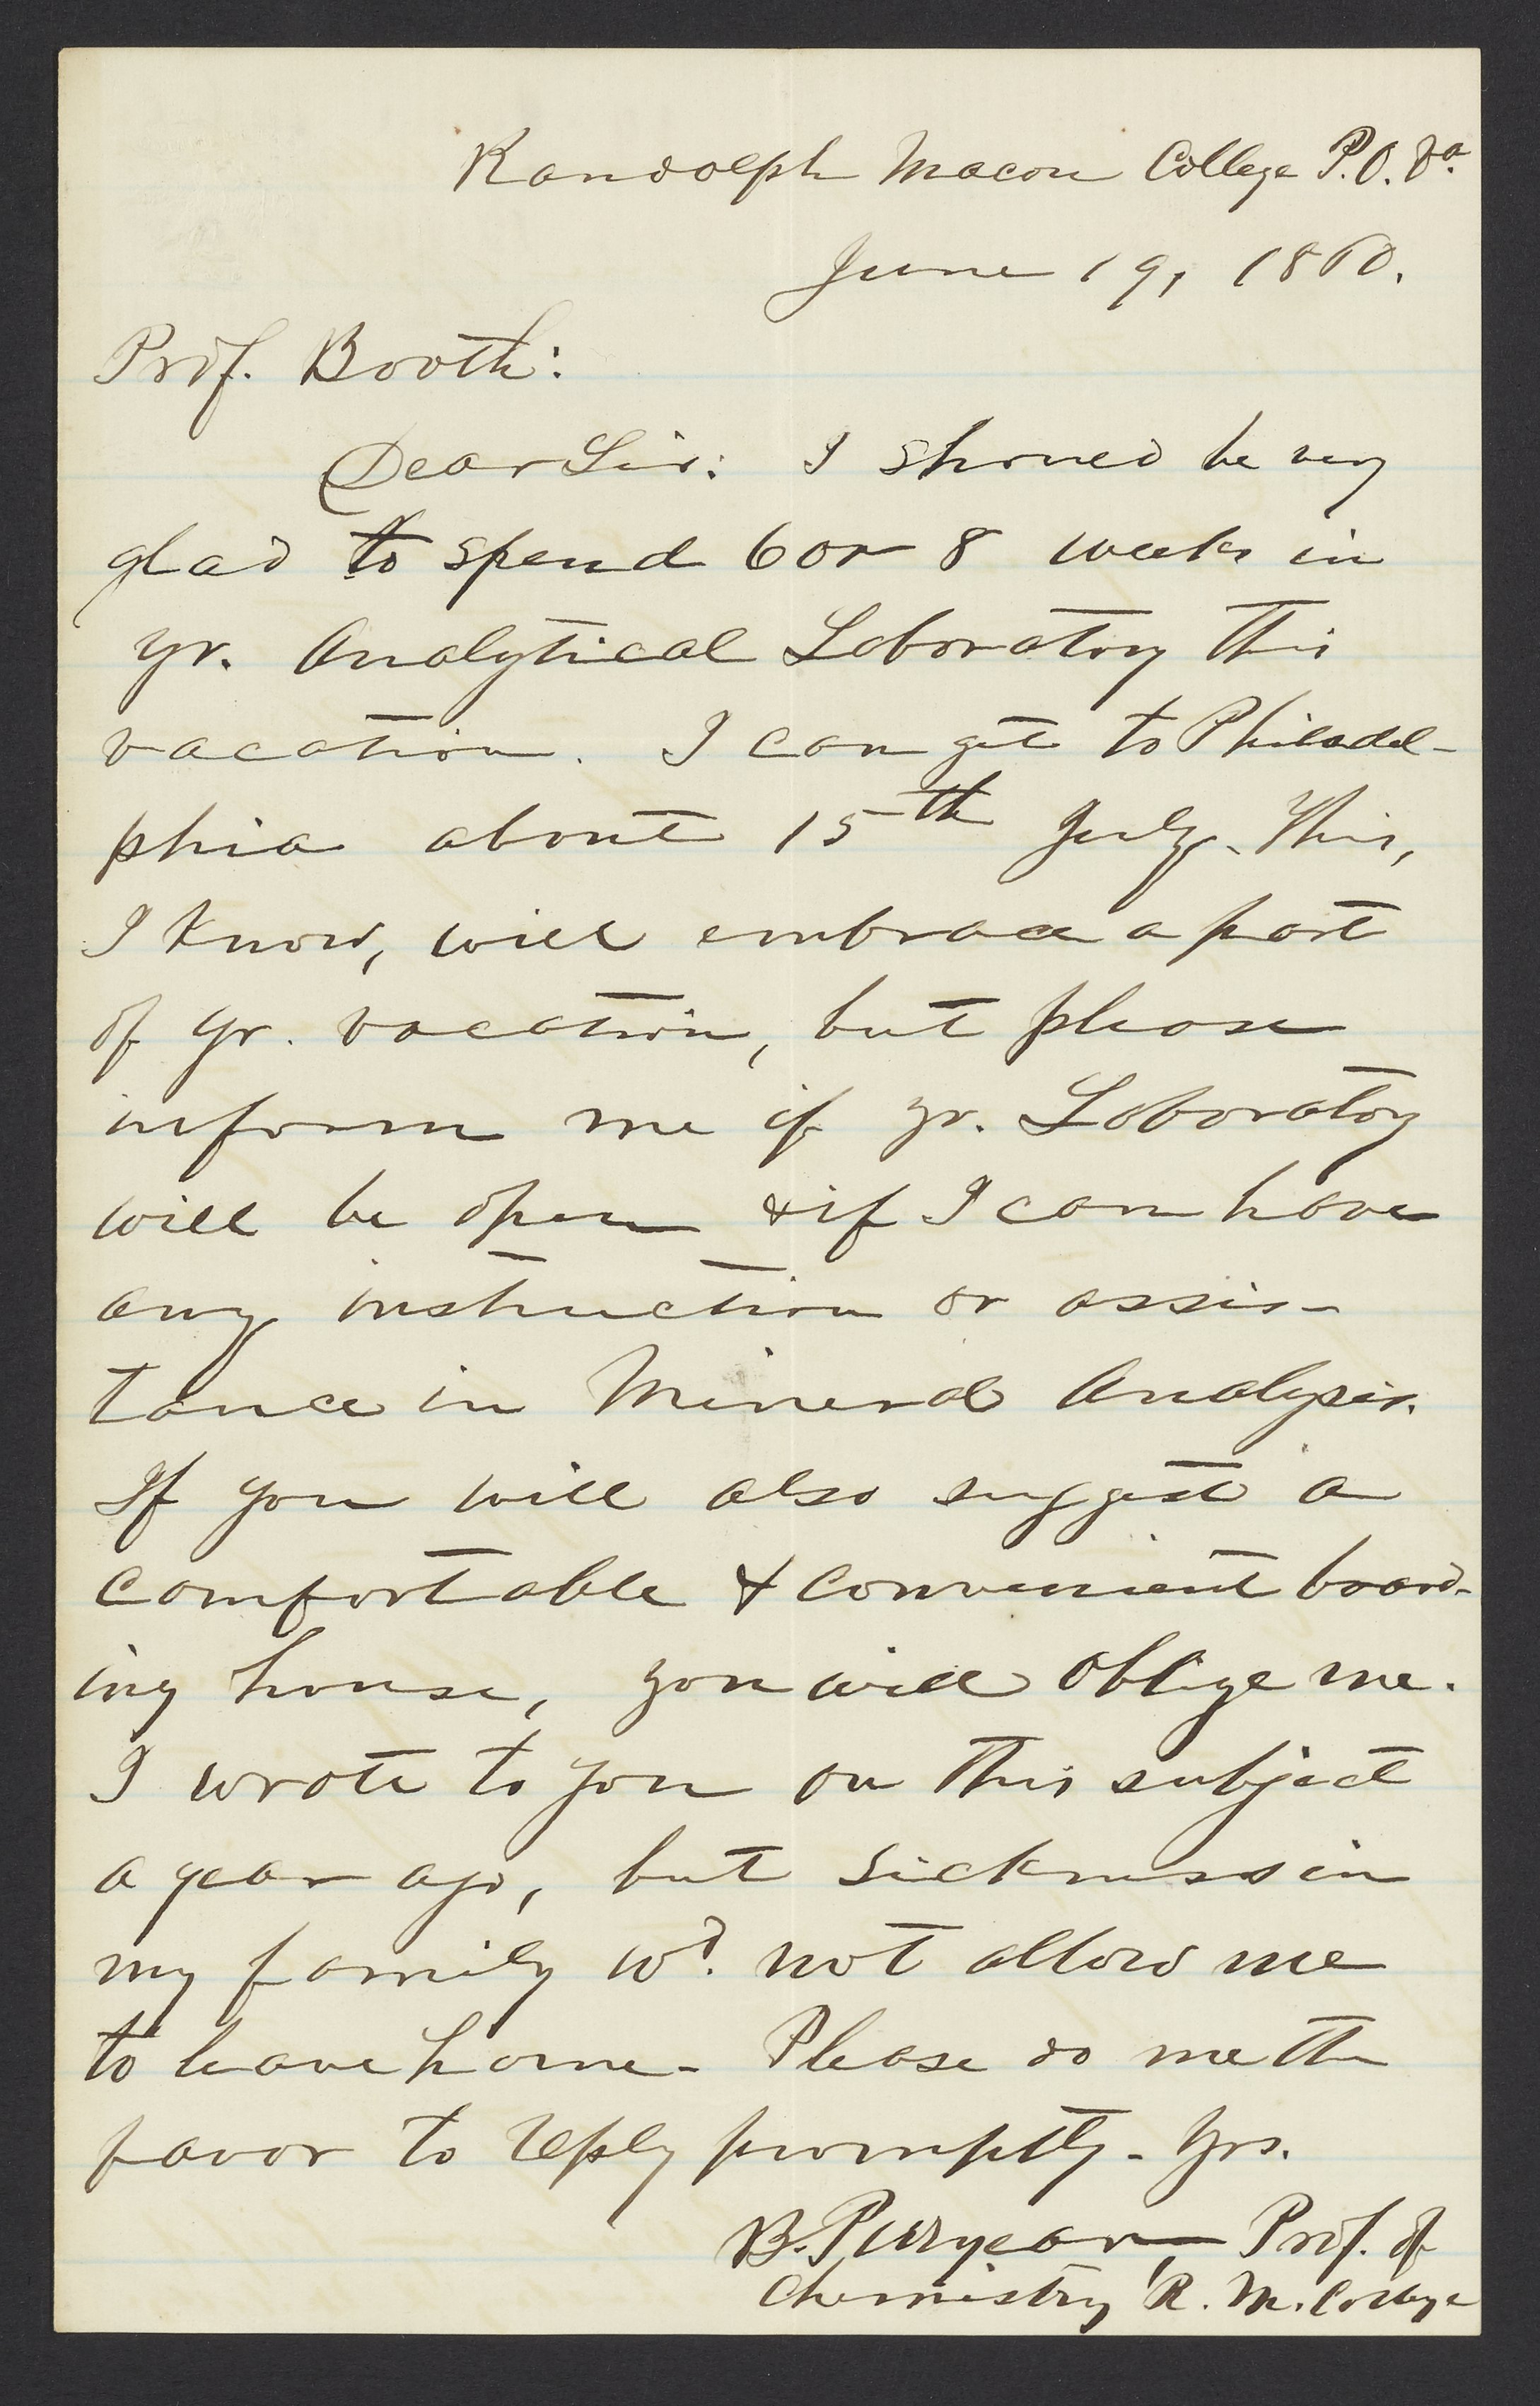 Randolph Macon College P.O. Va.
June 19, 1860.
Prof. Booth:
Dear Sir: I should be very
glad to spend 6 or 8 weeks in
yr. Analytical Laboratory this
vacation. I can get to Philadel-
phia about 15th July. This,
I know, will embrace a part
of yr. vacation, but please
inform me if yr. Laboratory
will be open & if I can have
any instruction or assis-
tance in Mineral Analysis.
If you will also suggest a
comfortable & convenient board-
ing house, you will oblige me.
I wrote to you on this subject
a year ago, but sickness in
my family wd. not allow me
to leave home - Please do me the
favor to reply promptly - Yrs.
B. Puryear, Prof. of
Chemistry R. M. College